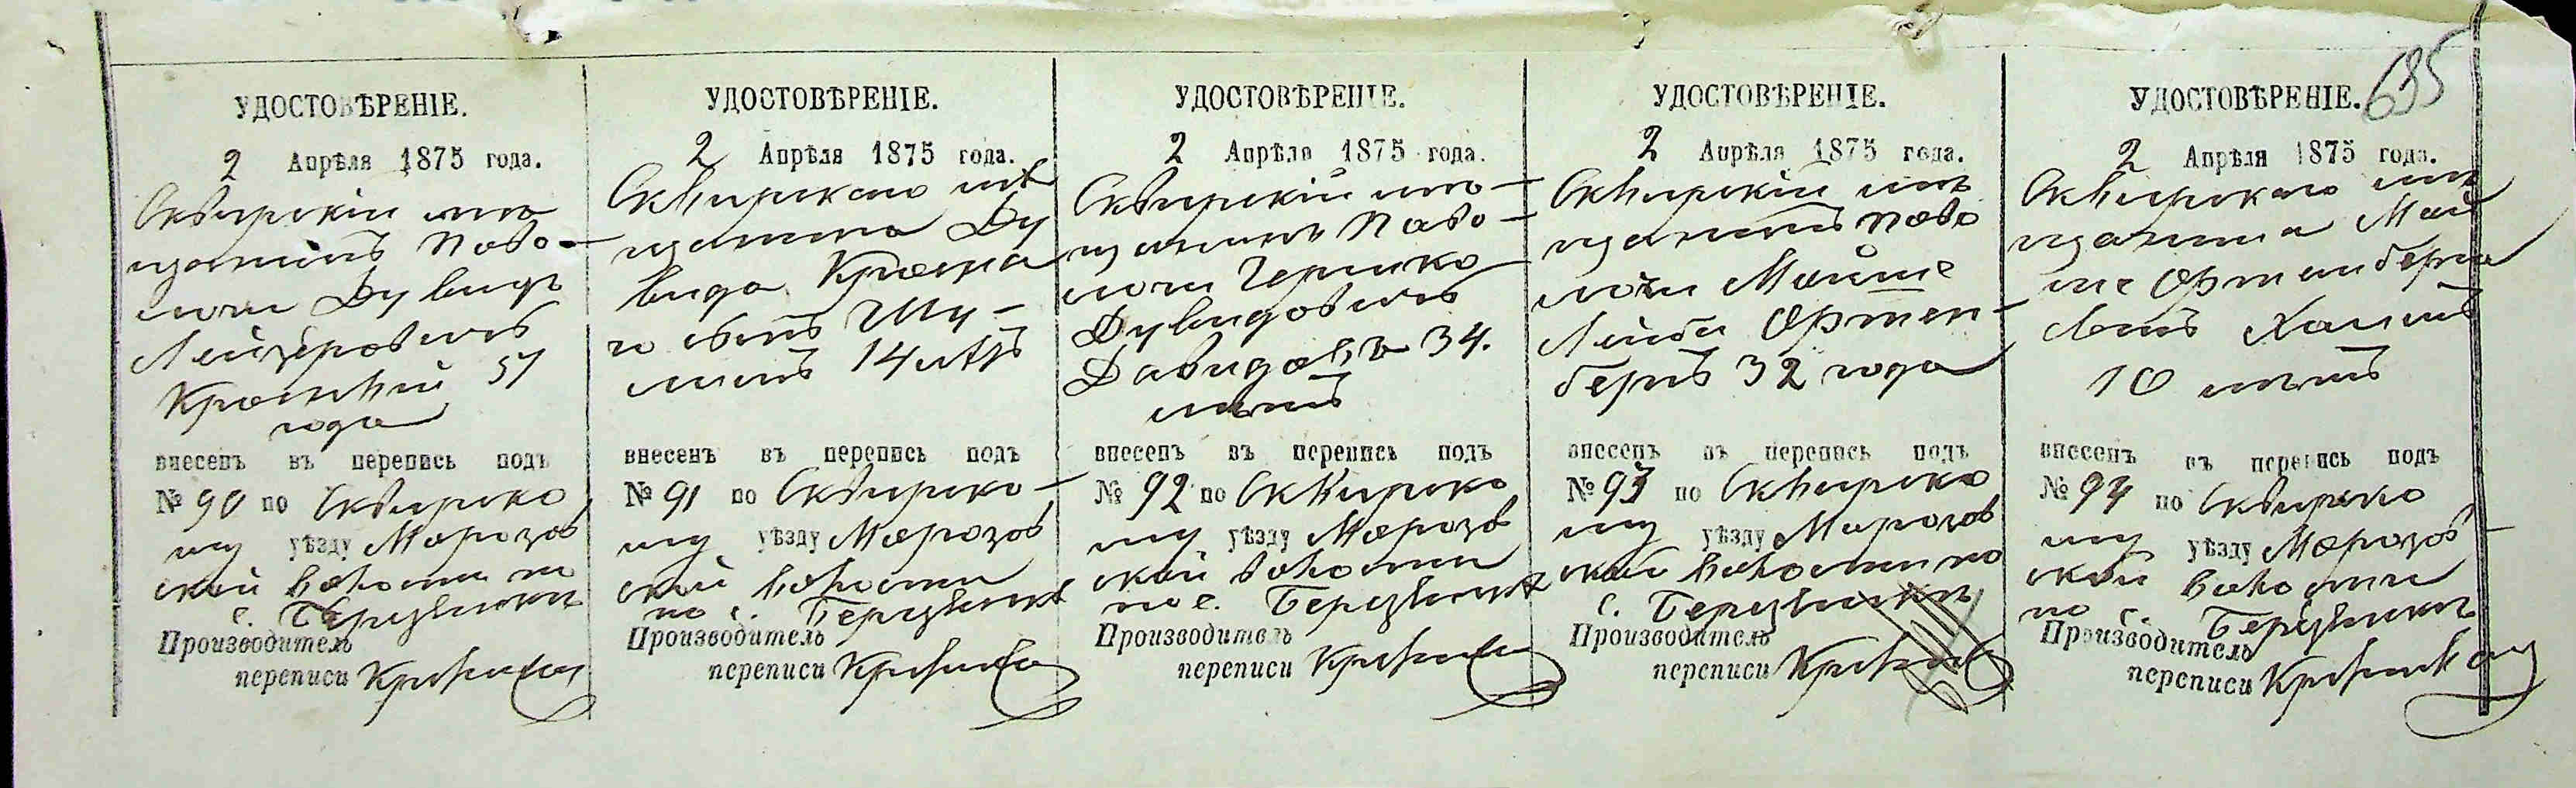 635
УДОСТОВѢРЕНІЕ.
2 Апрѣля 1875 года.
Сквирскій мѣ
щанинъ Паво-
лочи Дувидъ
Лейзеровичъ
57
года
внесенъ въ перепись подъ
№ 90 по Сквирско
му уѣзду Морозов
ской волости по
с. Березянкѣ
Производитель
переписи
УДОСТОВѢРЕНІЕ.
2 Апрѣля 1875 года.
Сквирскаго мѣ
щанина Ду
вида
го сынъ Шу-
лимъ 14 лѣтъ
внесенъ въ перепись подъ
№ 91 по Сквирско-
му уѣзду Морозов
ской волости
по с. Березянкѣ
Производитель
переписи
УДОСТОВѢРЕНІЕ.
2 Апрѣля 1875 года.
Сквирскій мѣ-
щанинъ Паво-
лочи Гершко
Дувидовичъ
34.
лѣтъ
внесенъ въ перепись подъ
№ 92 по Сквирско
му уѣзду Морозов
ской волости
по с. Березянкѣ
Производитель
переписи
УДОСТОВѢРЕНІЕ.
2 Апрѣля 1875 года.
Сквирскій мѣ
щанинъ Паво
лочи Мойше
Лейба Ортен-
бергъ 32 года
внесенъ въ перепись подъ
№ 93 по Сквирско
му уѣзду Морозов
ской волости по
с. Березянкѣ
Производитель
переписи
УДОСТОВѢРЕНІЕ.
2 Апрѣля 1875 года.
Сквирскаго мѣ
щанина Мой
ше Ортенберга
сынъ Хаимъ
10 лѣтъ
внесенъ въ перепись подъ
№ 94 по Сквирско
му уѣзду Морозов
ской волости
по с. Березянкѣ
Производитель
переписи